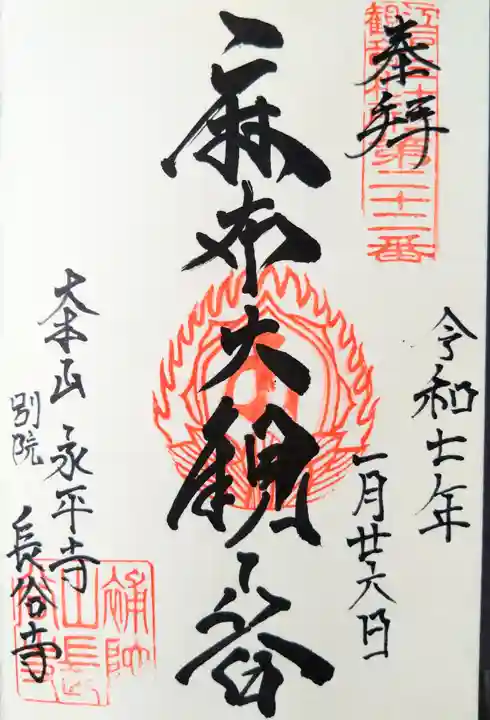 奉拝
江戸三十三
観音札所第二十二番
令和七年
一月廿六日
麻布大観音
大本山永平寺
別院 長谷寺
補陀
山長
谷寺